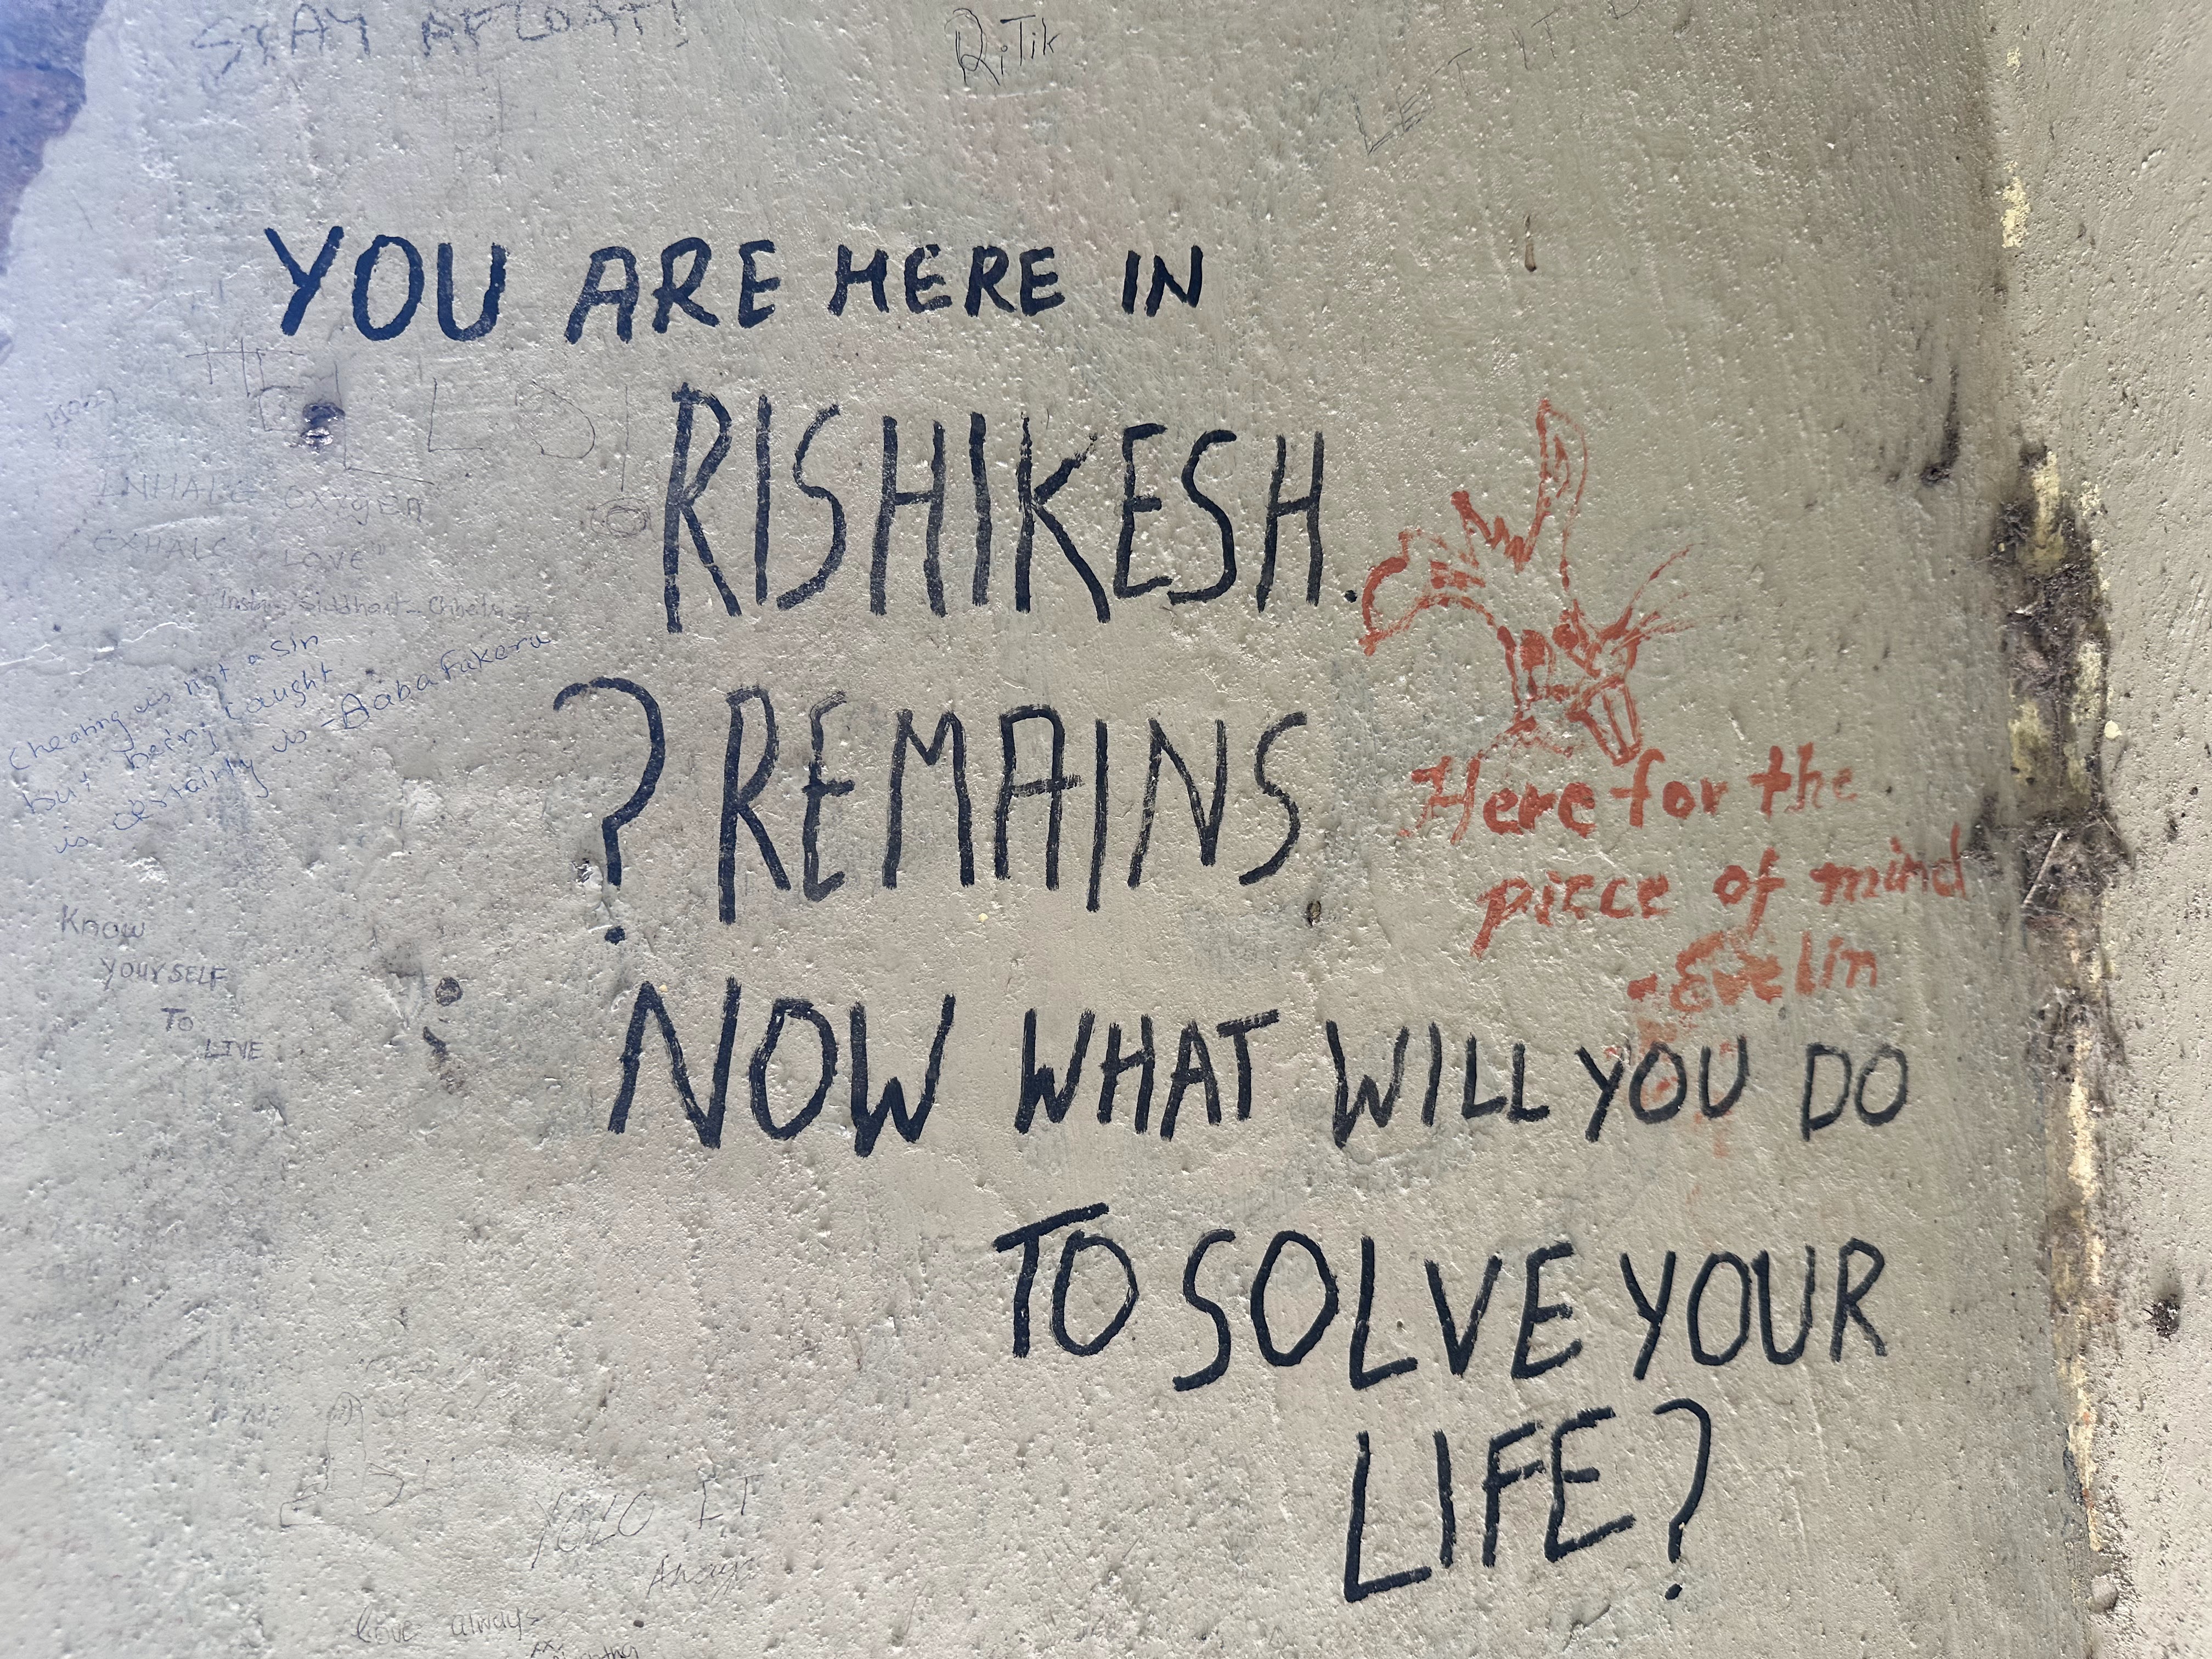 STAY AFLOAT!
RiTik
LET IT
YOU ARE HERE IN
RISHIKESH.
? REMAINS
NOW WHAT WILL YOU DO
TO SOLVE YOUR
LIFE?
Here for the
piece of mind
- Evelin
INHALE OXYGEN
EXHALE LOVE"
Cheating is not a sin
but being caught
is certainly is - Baba Fukera
Know
YOURSELF
To
LIVE
YOLO IT
Always
Love always